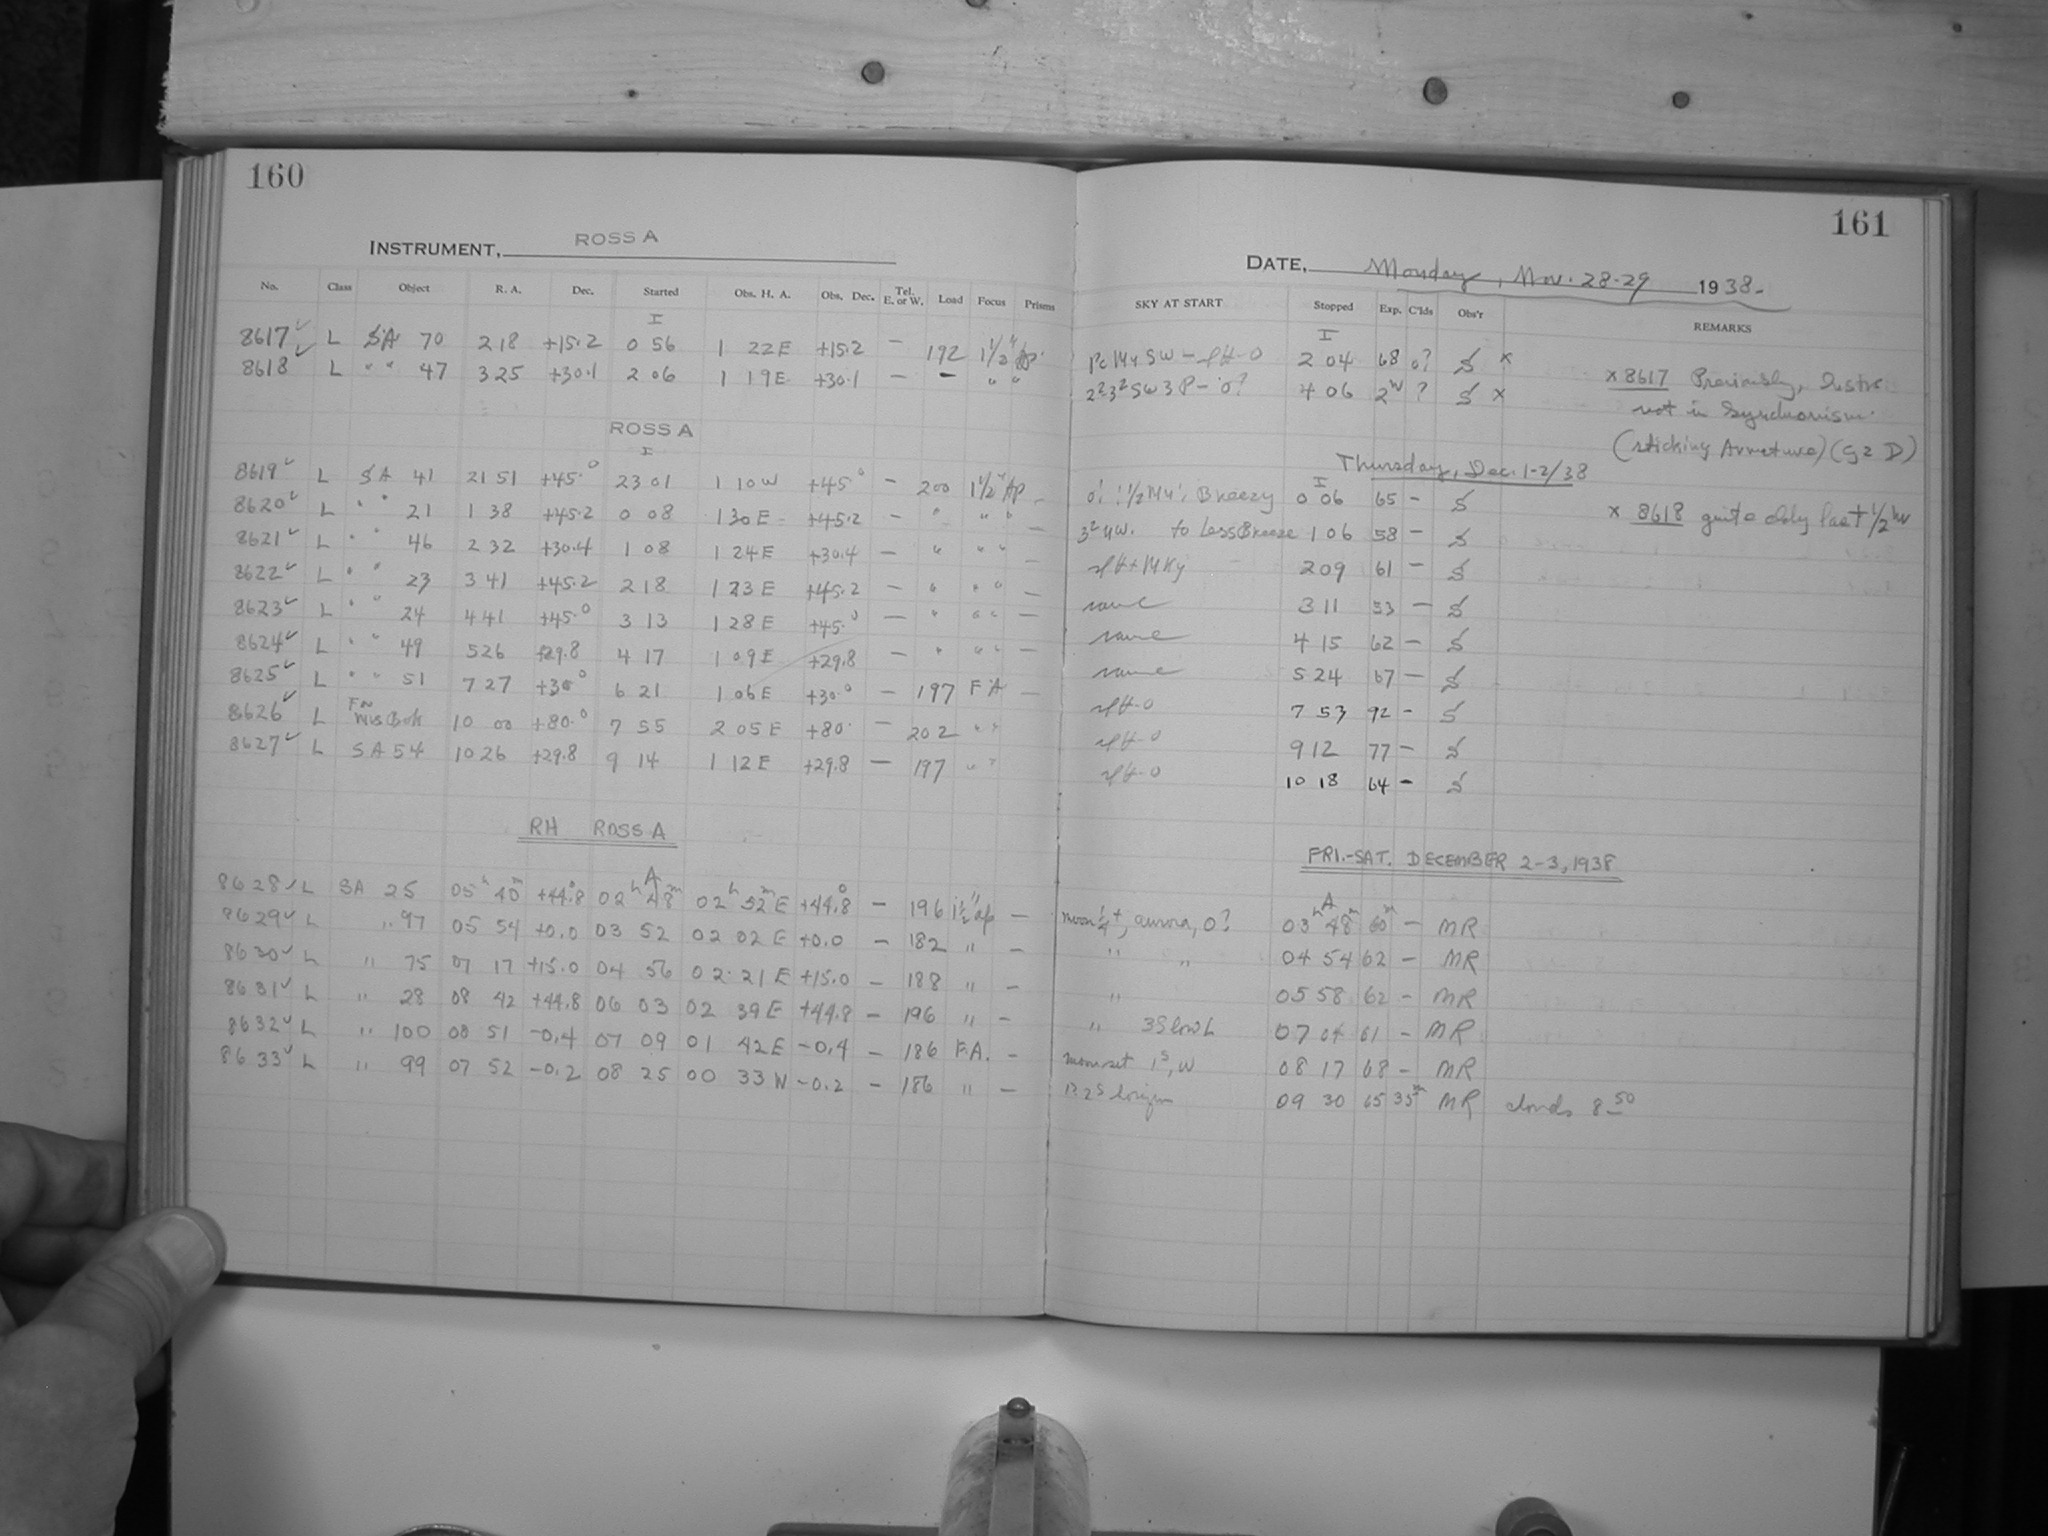 160
161
INSTRUMENT, ROSS A
DATE, Monday, Nov. 28-29 1938-
No. Class Object R. A. Dec. Started Obs. H. A. Obs. Dec. Tel. E. or W. Load Focus Prisms SKY AT START Stopped Exp. C'lds Obs'r REMARKS
I I
8617 ✓ L SA 70 2 18 +15.2 0 56 1 22 E +15.2 - 192 1 1/2" Ap. 2 04 68 0? S x
8618 ✓ L " " 47 3 25 +30.1 2 06 1 19 E +30.1 - - " " 4 06 2h ? S x
x 8617 Previously,
not in Synchronism.
(sticking Armature)
ROSS A
Thursday, Dec. 1-2/38
I I
8619 ✓ L SA 41 21 51 +45.0 23 01 1 10 W +45.0 - 200 1 1/2" Ap - Breezy 0 06 65 - S
8620 ✓ L " " 21 1 38 +45.2 0 08 1 30 E +45.2 - " " " - to Less Breeze 1 06 58 - S
x 8618 quite past 1/2 hr
8621 ✓ L " " 46 2 32 +30.4 1 08 1 24 E +30.4 - " " " - 2 09 61 - S
8622 ✓ L " " 23 3 41 +45.2 2 18 1 23 E +45.2 - " " " - same 3 11 53 - S
8623 ✓ L " " 24 4 41 +45.0 3 13 1 28 E +45.0 - " " " - same 4 15 62 - S
8624 ✓ L " " 49 5 26 +29.8 4 17 1 09 E +29.8 - " " " - same 5 24 67 - S
8625 ✓ L " " 51 7 27 +30.0 6 21 1 06 E +30.0 - 197 F A - 7 53 92 - S
8626 ✓ L 10 00 +80.0 7 55 2 05 E +80. - 202 " " 9 12 77 - S
8627 ✓ L SA 54 10 26 +29.8 9 14 1 12 E +29.8 - 197 " " 10 18 64 - S
RH ROSS A
FRI.-SAT. DECEMBER 2-3, 1938
A A
8628 ✓ L SA 25 05h 40m +44.8 02h 48m 02h 52m E +44.8 - 196 1 1/2" ap - moon 1/4+, aurora, 0? 03h 48m 60m - MR
8629 ✓ L " 97 05 54 +0.0 03 52 02 02 E +0.0 - 182 " - " " 04 54 62 - MR
8630 ✓ L " 75 07 17 +15.0 04 56 02 21 E +15.0 - 188 " - " 05 58 62 - MR
8631 ✓ L " 28 08 42 +44.8 06 03 02 39 E +44.8 - 196 " - " 3S low L 07 04 61 - MR
8632 ✓ L " 100 08 51 -0.4 07 09 01 42 E -0.4 - 186 F.A. - moonset 1S, W 08 17 68 - MR
8633 ✓ L " 99 07 52 -0.2 08 25 00 33 W -0.2 - 186 " - horizon 09 30 65 35m MR clouds 8-50